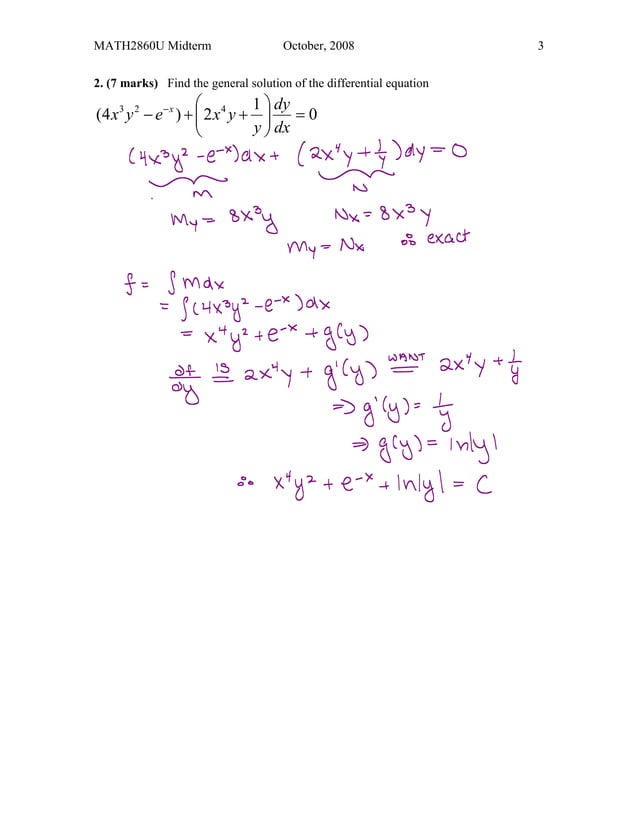 MATH2860U Midterm October, 2008 3
2. (7 marks) Find the general solution of the differential equation
(4x³y² − e⁻ˣ) + (2x⁴y + 1/y) dy/dx = 0
(4x³y² − e⁻ˣ)dx + (2x⁴y + 1/y)dy = 0
M N
My = 8x³y Nx = 8x³y
My = Nx ∴ exact
f = ∫ mdx
= ∫(4x³y² − e⁻ˣ)dx
= x⁴y² + e⁻ˣ + g(y)
∂f/∂y IS = 2x⁴y + g'(y) WANT = 2x⁴y + 1/y
⇒ g'(y) = 1/y
⇒ g(y) = ln|y|
∴ x⁴y² + e⁻ˣ + ln|y| = C